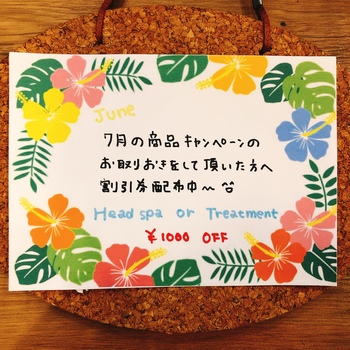 June
7月の商品キャンペーンの
お取りおきをして頂いた方へ
割引券配布中〜
Head spa or Treatment
¥1000 OFF